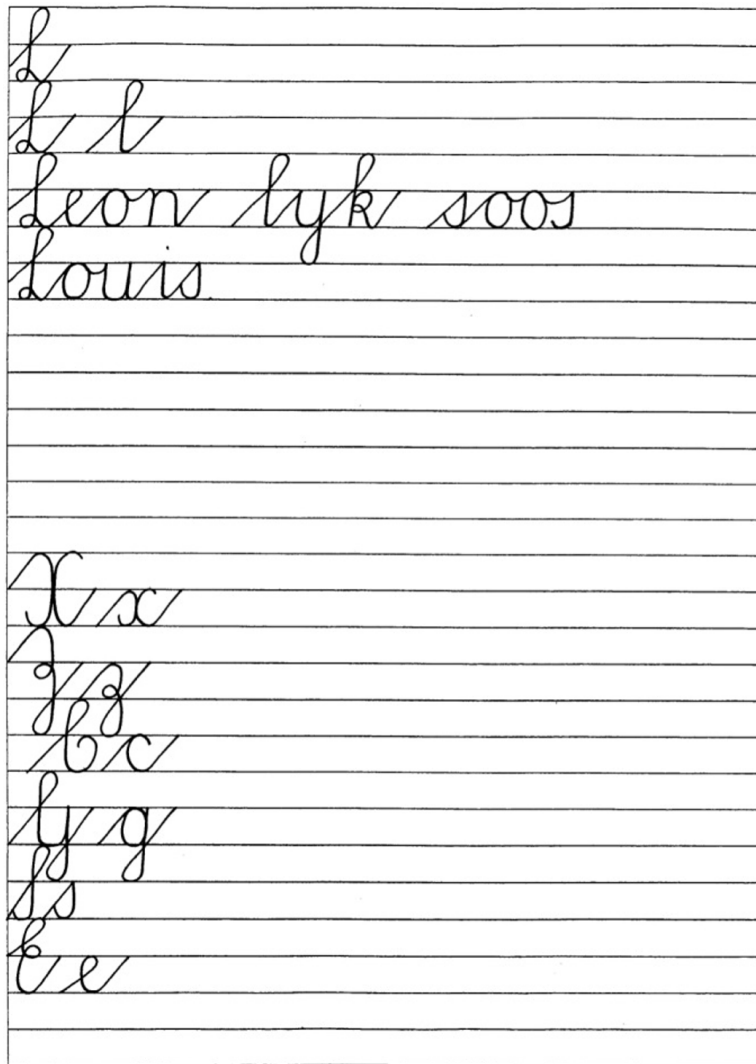 L
L l
Leon lyk soos
Louis.
X x
Z z
C c
G g
S s
E e